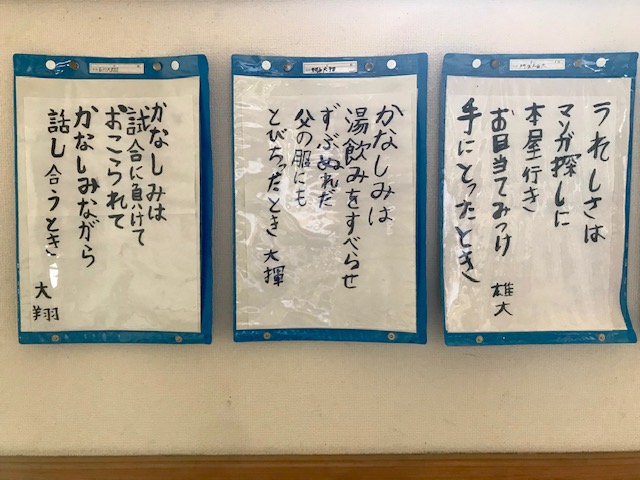 うれしさは
マンガ探しに
本屋行き
お目当てみつけ
手にとったとき
雄大
かなしみは
湯飲みをすべらせ
ずぶぬれだ
父の服にも
とびちったとき
大揮
かなしみは
試合に負けて
おこられて
かなしみながら
話し合うとき
大翔